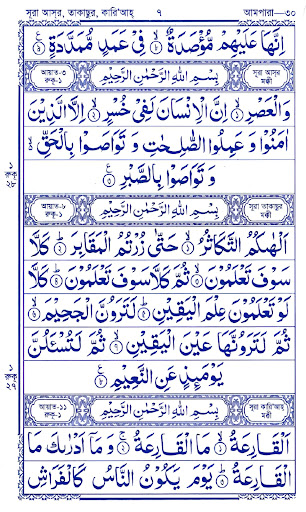 সূরা আস্‌র, তাকাছুর, কারি'আহ্ ৭ আমপারা—৩০
اِنَّهَا عَلَيْهِمْ مُّؤْصَدَةٌ ۙ فِيْ عَمَدٍ مُّمَدَّدَةٍ
আয়াত-৩ রুকূ-১ بِسْمِ اللّٰهِ الرَّحْمٰنِ الرَّحِيْمِ সূরা আস্‌র মক্কী
وَالْعَصْرِ ۙ اِنَّ الْاِنْسَانَ لَفِيْ خُسْرٍ ۙ اِلَّا الَّذِيْنَ
اٰمَنُوْا وَ عَمِلُوا الصّٰلِحٰتِ وَ تَوَاصَوْا بِالْحَقِّ ۙ
وَ تَوَاصَوْا بِالصَّبْرِ
আয়াত-৮ রুকূ-১ بِسْمِ اللّٰهِ الرَّحْمٰنِ الرَّحِيْمِ সূরা তাকাছুর মক্কী
اَلْهٰىكُمُ التَّكَاثُرُ ۙ حَتّٰى زُرْتُمُ الْمَقَابِرَ ؕ كَلَّا
سَوْفَ تَعْلَمُوْنَ ۙ ثُمَّ كَلَّا سَوْفَ تَعْلَمُوْنَ ؕ كَلَّا
لَوْ تَعْلَمُوْنَ عِلْمَ الْيَقِيْنِ ؕ لَتَرَوُنَّ الْجَحِيْمَ ۙ
ثُمَّ لَتَرَوُنَّهَا عَيْنَ الْيَقِيْنِ ۙ ثُمَّ لَتُسْـَٔلُنَّ
يَوْمَئِذٍ عَنِ النَّعِيْمِ
আয়াত-১১ রুকূ-১ بِسْمِ اللّٰهِ الرَّحْمٰنِ الرَّحِيْمِ সূরা কারি'আহ্ মক্কী
اَلْقَارِعَةُ ۙ مَا الْقَارِعَةُ ۚ وَ مَاۤ اَدْرٰىكَ مَا
الْقَارِعَةُ ؕ يَوْمَ يَكُوْنُ النَّاسُ كَالْفَرَاشِ